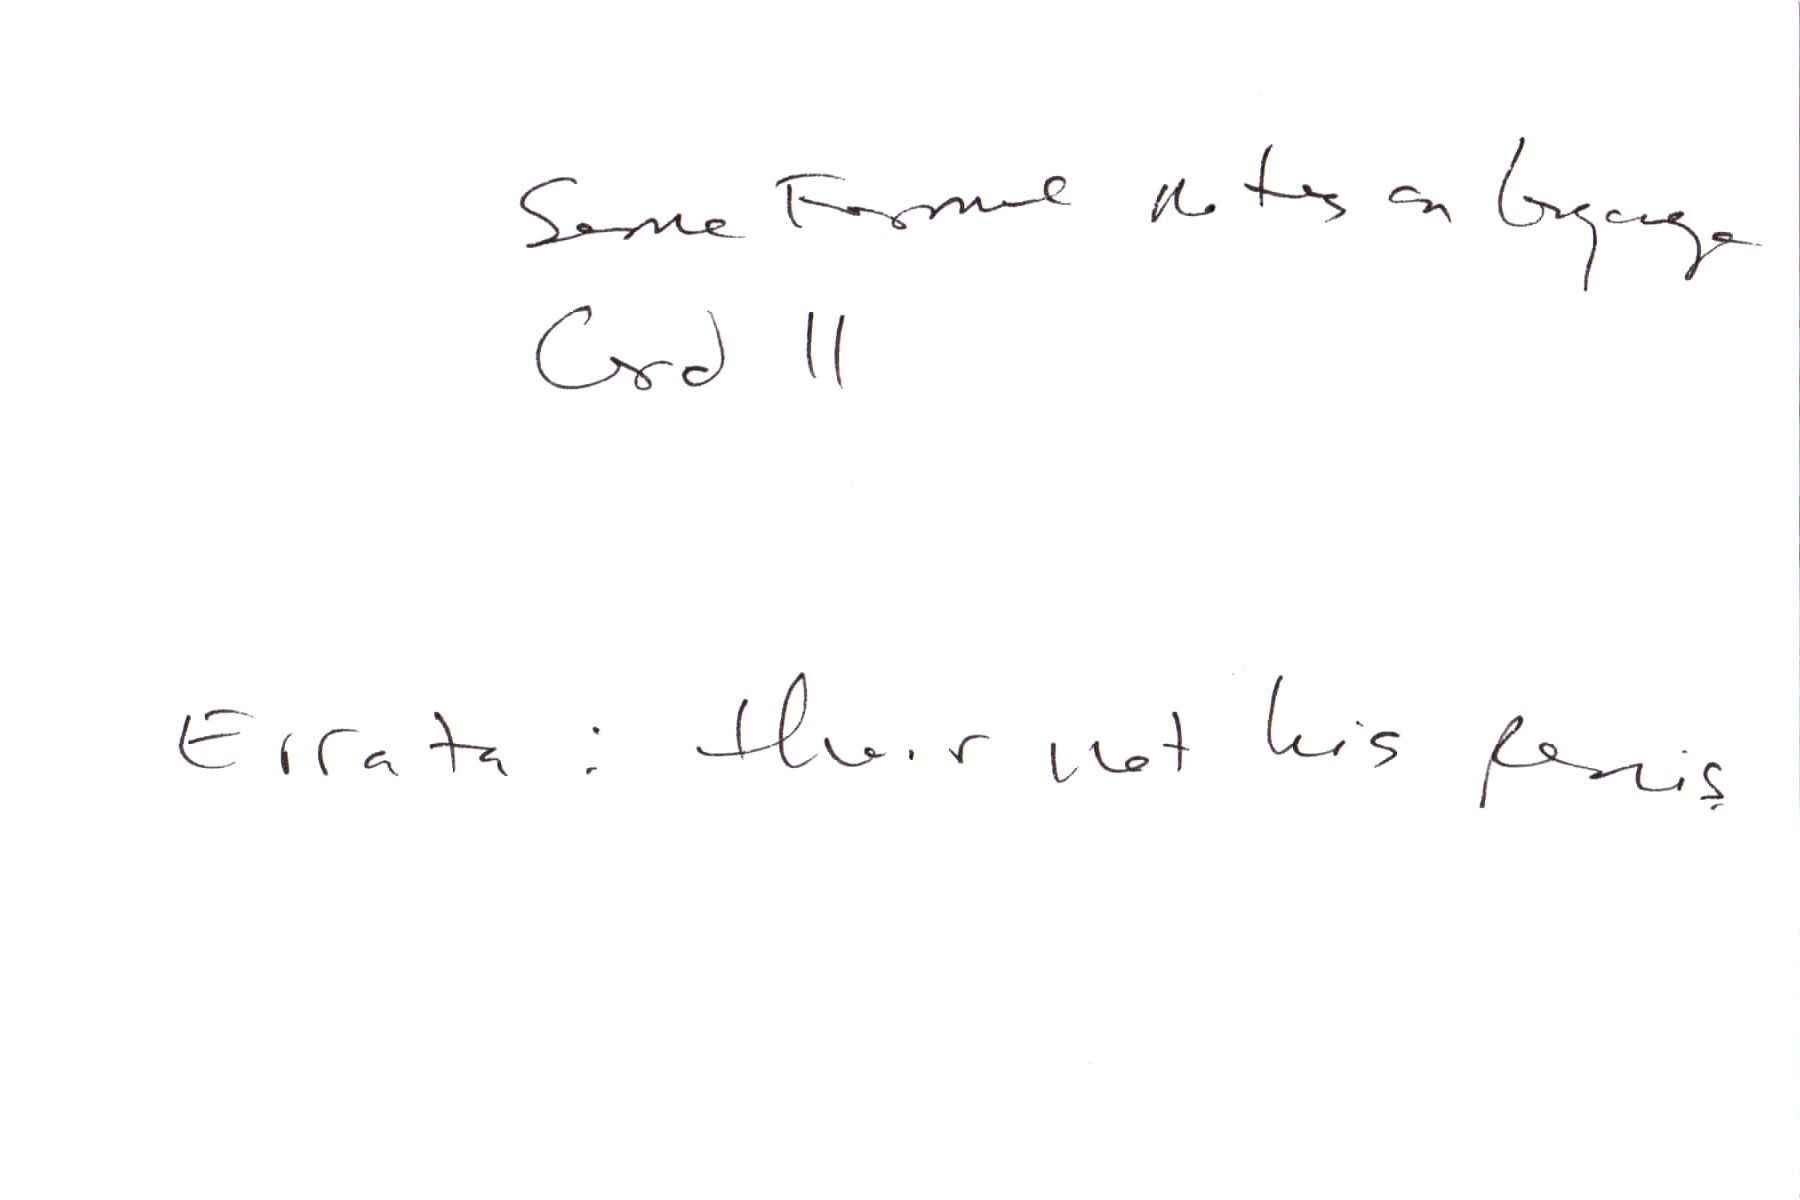 Some Formal notes on language
Card 11
Errata: their not his penis